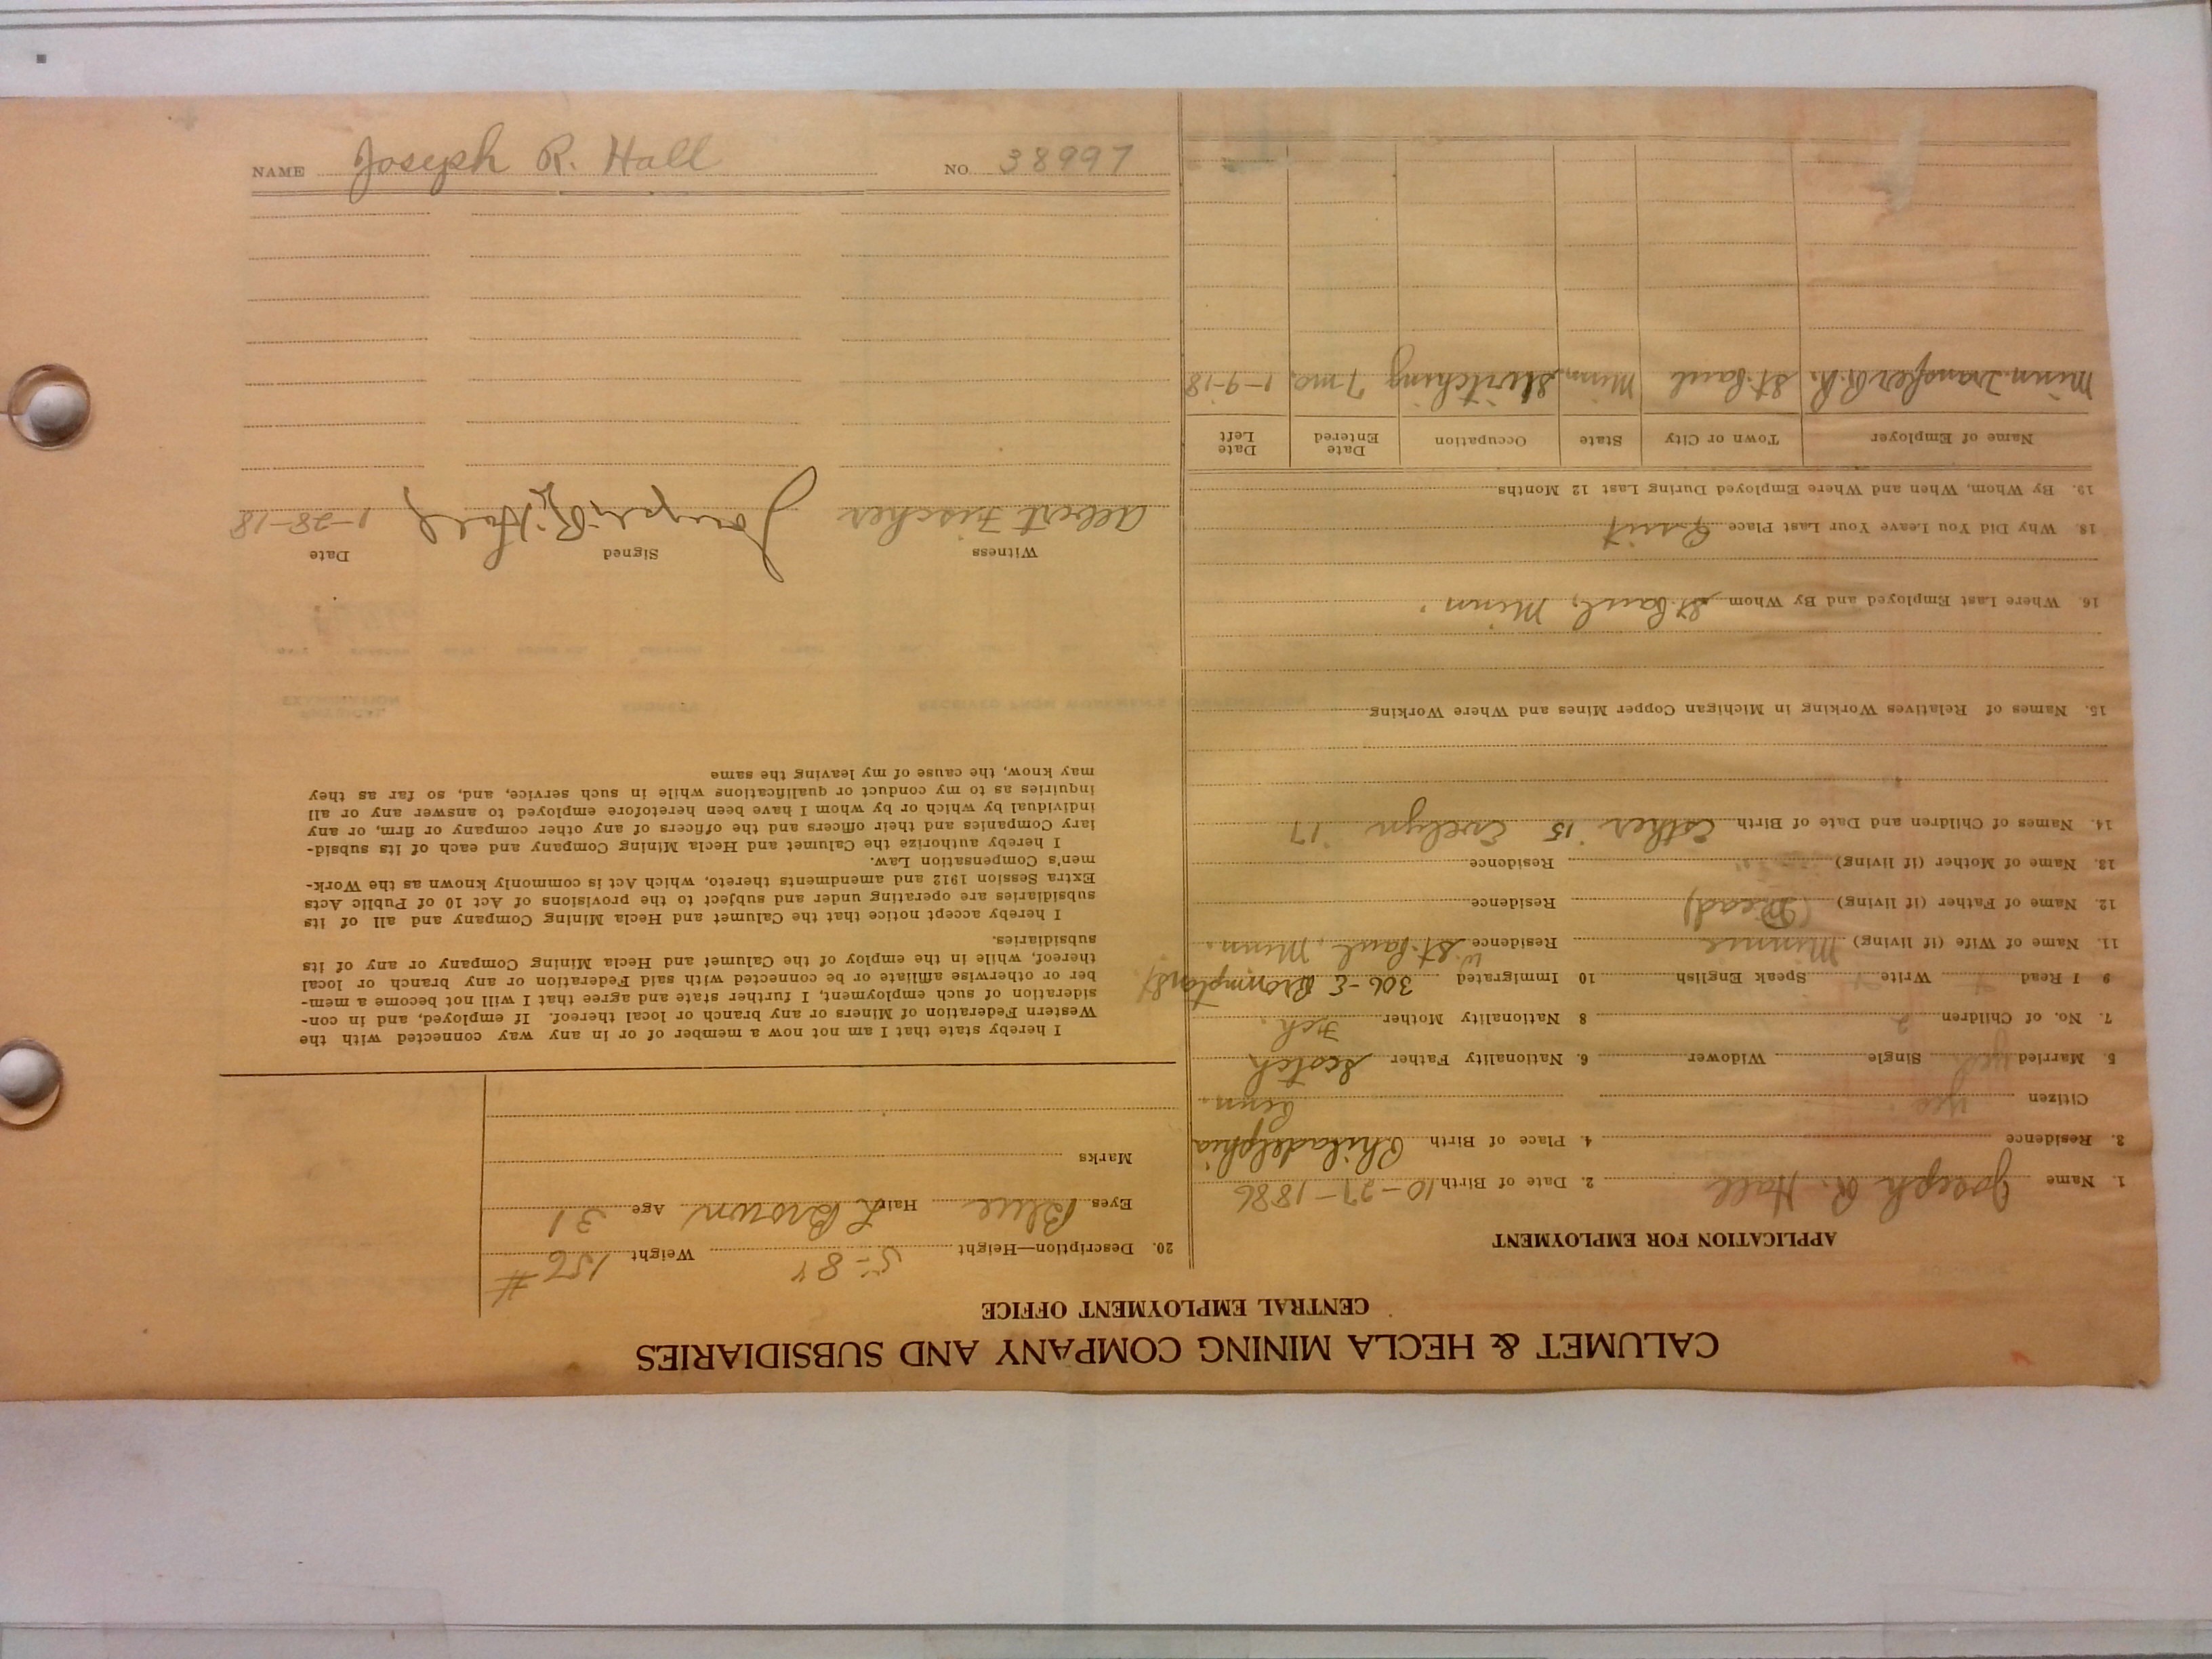 CALUMET & HECLA MINING COMPANY AND SUBSIDIARIES
CENTRAL EMPLOYMENT OFFICE
APPLICATION FOR EMPLOYMENT
1. Name Joseph R. Hall 2. Date of Birth 10-27-1886
3. Residence 4. Place of Birth Philadelphia
Citizen yes. Penn.
5. Married yes Single Widower 6. Nationality Father Scotch
7. No. of Children 2 8 Nationality Mother Fch.
9 I Read Write Speak English 10 Immigrated 306-E Brompton St
11. Name of Wife (if living) Minnie Residence W. St. Paul, Minn.
12. Name of Father (if living) (Dead) Residence
13. Name of Mother (if living) Residence
14. Names of Children and Date of Birth Esther '15 Evelyn '17
15. Names of Relatives Working in Michigan Copper Mines and Where Working
16. Where Last Employed and By Whom St. Paul, Minn.
18. Why Did You Leave Your Last Place Quit
19. By Whom, When and Where Employed During Last 12 Months
Name of Employer Town or City State Occupation Date Entered Date Left
Minn. Transfer R.R. St. Paul Minn. Switching 7 mo. 1-9-18
20. Description—Height 5-8 Weight 156 #
Eyes Blue Hair L Brown Age 31
Marks
I hereby state that I am not now a member of or in any way connected with the
Western Federation of Miners or any branch or local thereof. If employed, and in con-
sideration of such employment, I further state and agree that I will not become a mem-
ber or otherwise affiliate or be connected with said Federation or any branch or local
thereof, while in the employ of the Calumet and Hecla Mining Company or any of its
subsidiaries.
I hereby accept notice that the Calumet and Hecla Mining Company and all of its
subsidiaries are operating under and subject to the provisions of Act 10 of Public Acts
Extra Session 1912 and amendments thereto, which Act is commonly known as the Work-
men's Compensation Law.
I hereby authorize the Calumet and Hecla Mining Company and each of its subsid-
iary Companies and their officers and the officers of any other company or firm, or any
individual by which or by whom I have been heretofore employed to answer any or all
inquiries as to my conduct or qualifications while in such service, and, so far as they
may know, the cause of my leaving the same
Witness Signed Date
Albert Fischer Joseph R. Hall 1-28-18
NAME Joseph R. Hall NO. 38997